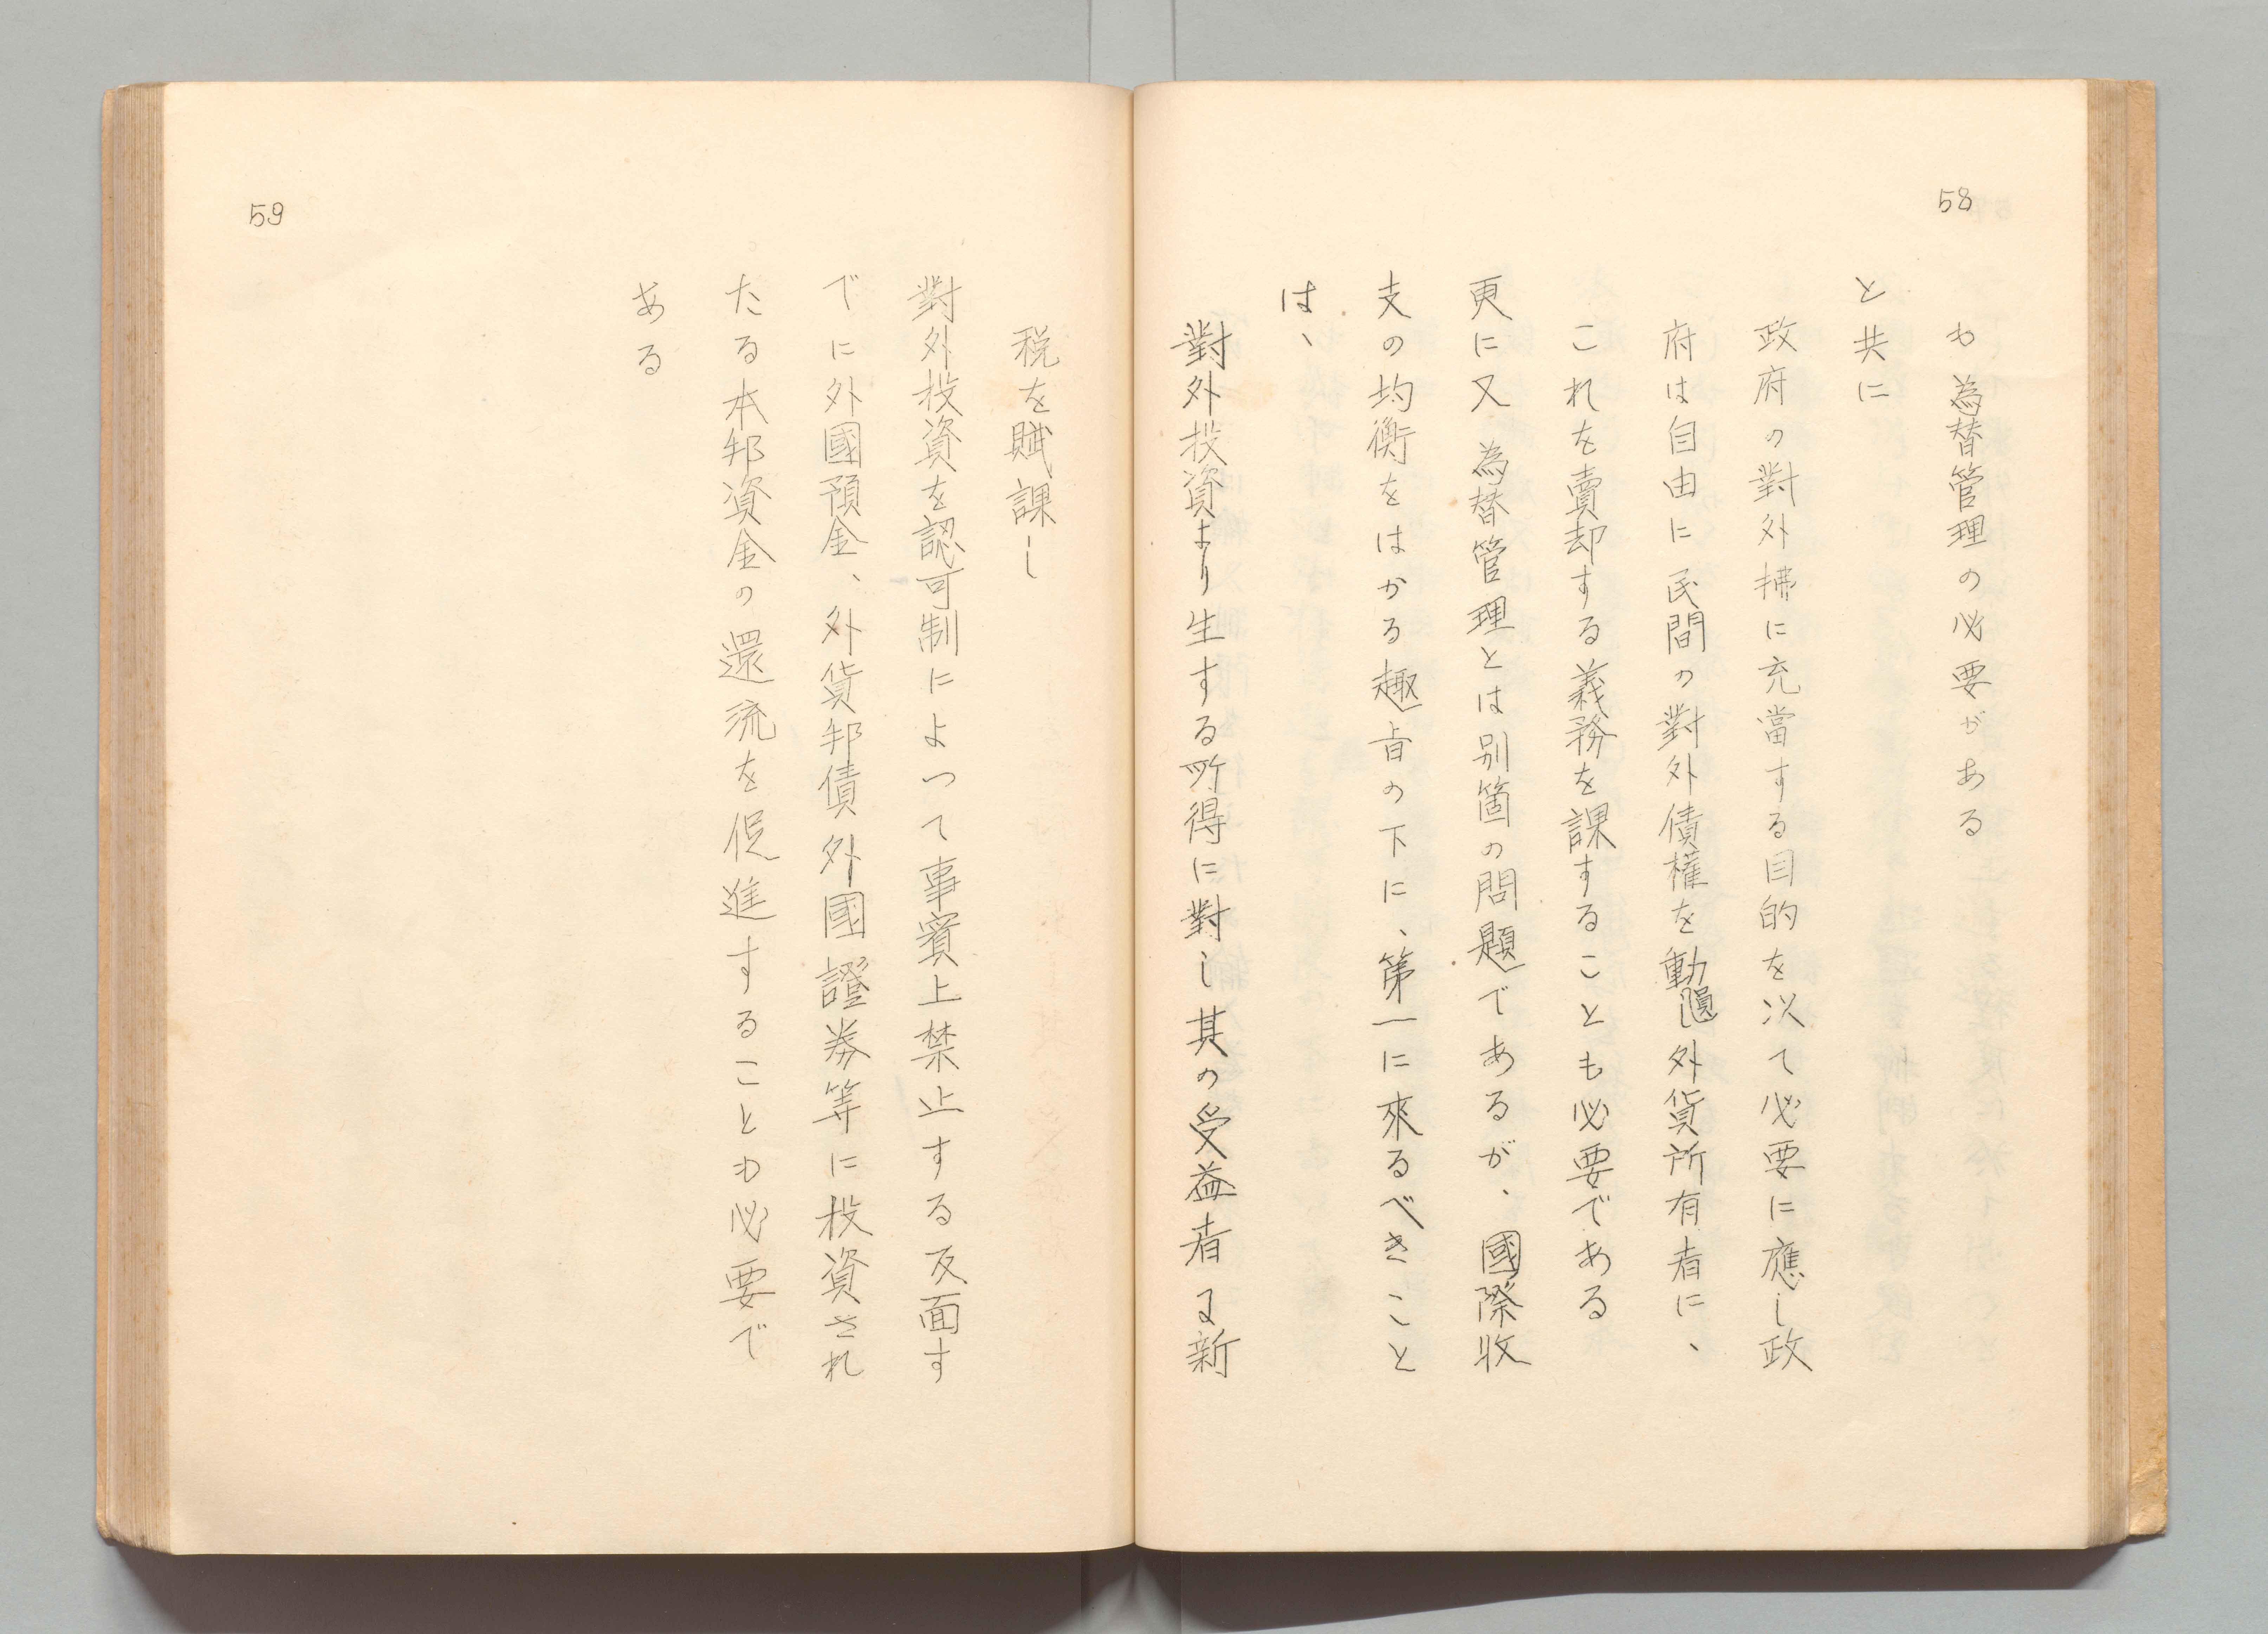 58
も為替管理の必要がある
と共に
政府の對外拂に充當する目的を以て必要に應し政
府は自由に民間の對外債權を動員し外貨所有者に、
これを賣却する義務を課することも必要である
更に又為替管理とは別箇の問題であるが、國際收
支の均衡をはかる趣旨の下に、第一に來るべきこと
は、
對外投資より生する所得に對し其の受益者に新
税を賦課し
對外投資を認可制によつて事實上禁止する反面す
でに外國預金、外貨邦債外國證券等に投資され
たる本邦資金の還流を促進することも必要で
ある
59